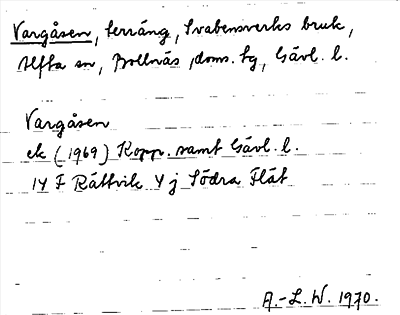 Vargåsen, terräng, Svabensverks bruk,
Alfta sn, Bollnäs, doms. tg, Gävl. l.
Vargåsen
ek (1969) Kopp. samt Gävl. l.
14 F Rättvik 4 j Södra Flåt
A.-L. W. 1970.